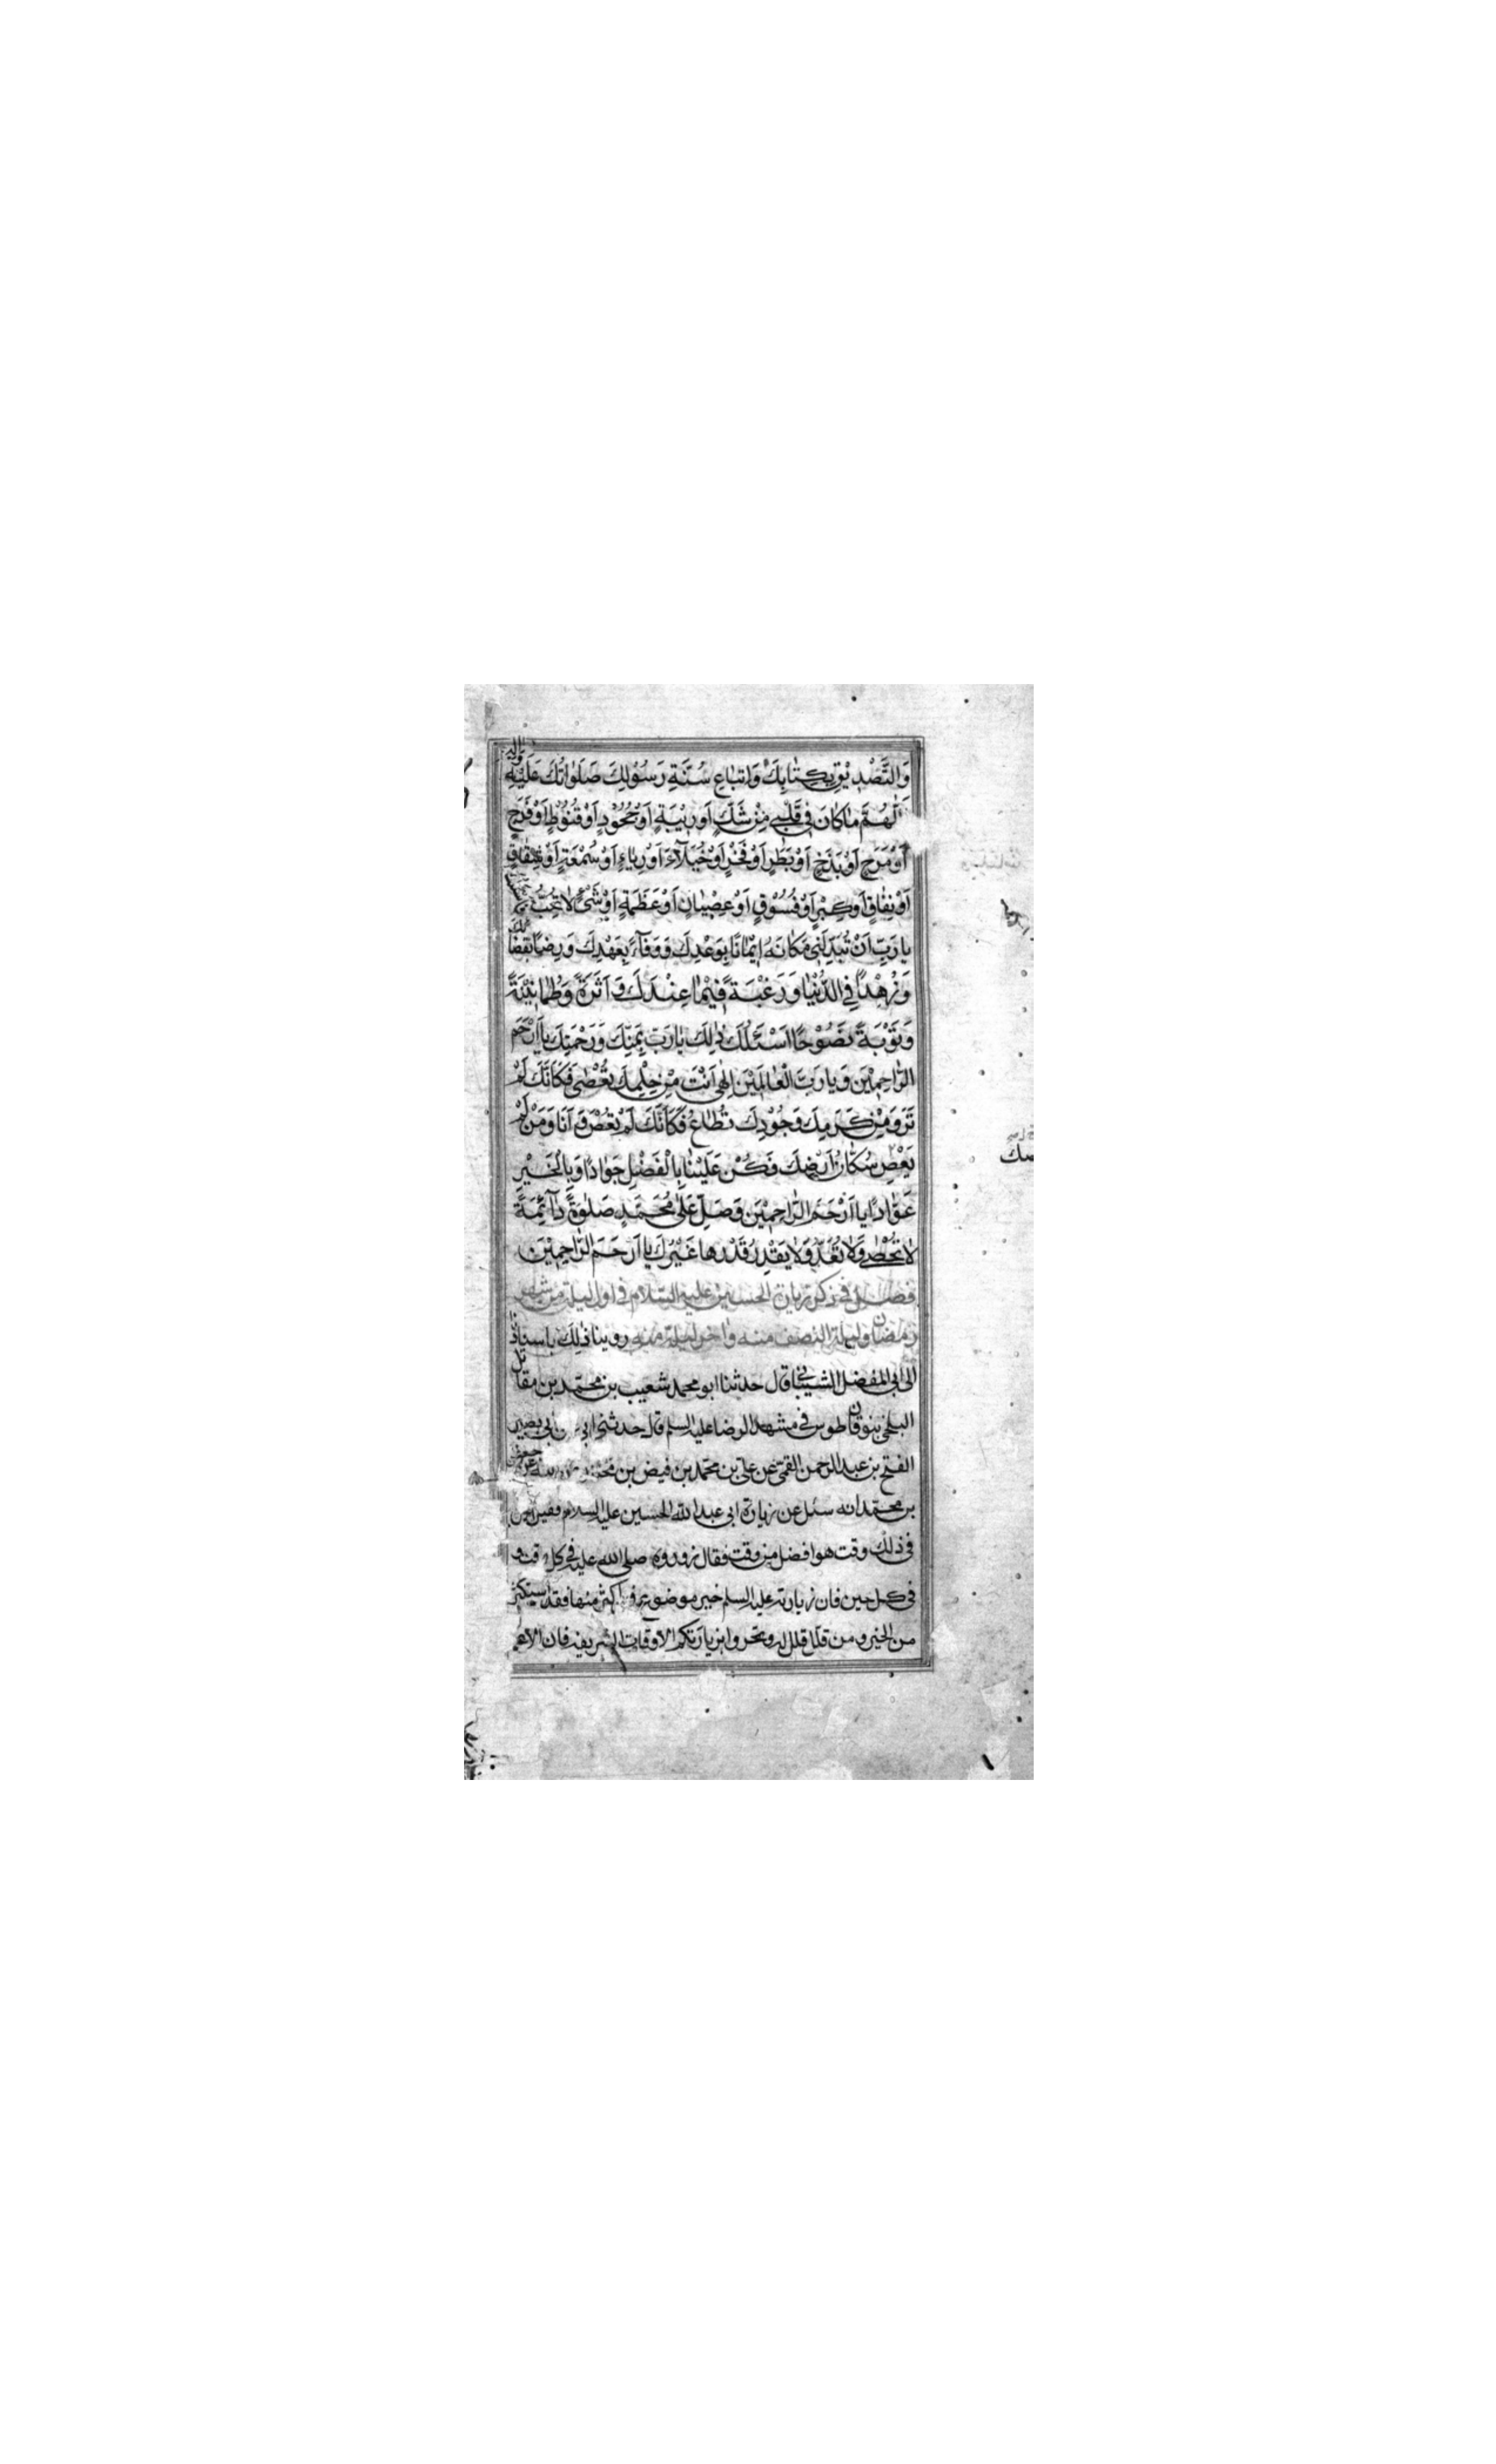 وَالتَّصْدِيْقِ بِكِتٰابِكَ وَاتِّبٰاعِ سُنَّةِ رَسُوْلِكَ صَلَوٰاتُكَ عَلَيْهِ وَآلِهِ
اَللّٰهُمَّ مٰا كٰانَ فِي قَلْبِي مِنْ شَكٍّ اَوْ رِيْبَةٍ اَوْ جُحُوْدٍ اَوْ قُنُوْطٍ اَوْ فَرَحٍ
اَوْ مَرَحٍ اَوْ بَذَخٍ اَوْ بَطَرٍ اَوْ فَخْرٍ اَوْ خُيَلَآءَ اَوْ رِيٰاءٍ اَوْ سُمْعَةٍ اَوْ شِقٰاقٍ
اَوْ نِفٰاقٍ اَوْ كِبْرٍ اَوْ فُسُوْقٍ اَوْ عِصْيٰانٍ اَوْ عَظَمَةٍ اَوْ شَيْءٍ لٰا تُحِبُّ
يا رَبِّ اَنْ تُبَدِّلَنِي مَكٰانَهُ اِيْمٰانًا بِوَعْدِكَ وَوَفٰآءً بِعَهْدِكَ وَرِضًا بِقَضٰائِكَ
وَزُهْدًا فِي الدُّنْيٰا وَرَغْبَةً فِيْمٰا عِنْدَكَ وَاَثَرَةً وَطُمٰانِيْنَةً
وَتَوْبَةً نَصُوْحًا اَسْئَلُكَ ذٰلِكَ يٰا رَبِّ بِمَنِّكَ وَرَحْمَتِكَ يا اَرْحَمَ
الرّٰاحِمِيْنَ وَيا رَبَّ الْعٰالَمِيْنَ اِلٰهِي اَنْتَ مِنْ حِلْمِكَ تُعْصٰى فَكَاَنَّكَ لَمْ
تَرَ وَمِنْ كَرَمِكَ وَجُوْدِكَ تُطٰاعُ فَكَاَنَّكَ لَمْ تُعْصَ وَاَنَا وَمَنْ لَمْ
يَعْصِ سُكّٰانُ اَرْضِكَ فَكُنْ عَلَيْنٰا بِالْفَضْلِ جَوٰادًا وَبِالْخَيْرِ
عَوّٰادًا يا اَرْحَمَ الرّٰاحِمِيْنَ وَصَلِّ عَلٰى مُحَمَّدٍ صَلٰوةً دٰآئِمَةً
لٰا تُحْصٰى وَلٰا تُعَدُّ وَلٰا يَقْدِرُ قَدْرَها غَيْرُكَ يا اَرْحَمَ الرّٰاحِمِيْنَ
فصل في ذكر زيارة الحسين عليه السلام في اول ليلة من شهر
رمضان وليلة النصف منه واخر ليلة منه روينا ذلك باسنادنا
الى ابي المفضل الشيباني قال حدثنا ابو محمد شعيب بن محمد بن مقاتل
البلخي بنوقان طوس في مشهد الرضا عليه السلم قال حدثني ابي عن ابي بصير
الفتح بن عبد الرحمن القمي عن علي بن محمد بن فيض بن عن جعفر
بن محمد انه سئل عن زيارة ابي عبد الله الحسين عليه السلام فقيل هل
في ذلك وقت هو افضل من وقت فقال زوروه صلى الله عليه في كل وقت و
في كل حين فان زيارته عليه السلم خير موضوع فمن اكثر منها فقد استكثر
من الخير ومن قلل قلل له وتحروا بزيارتكم الاوقات الشريفة فان الاعمال